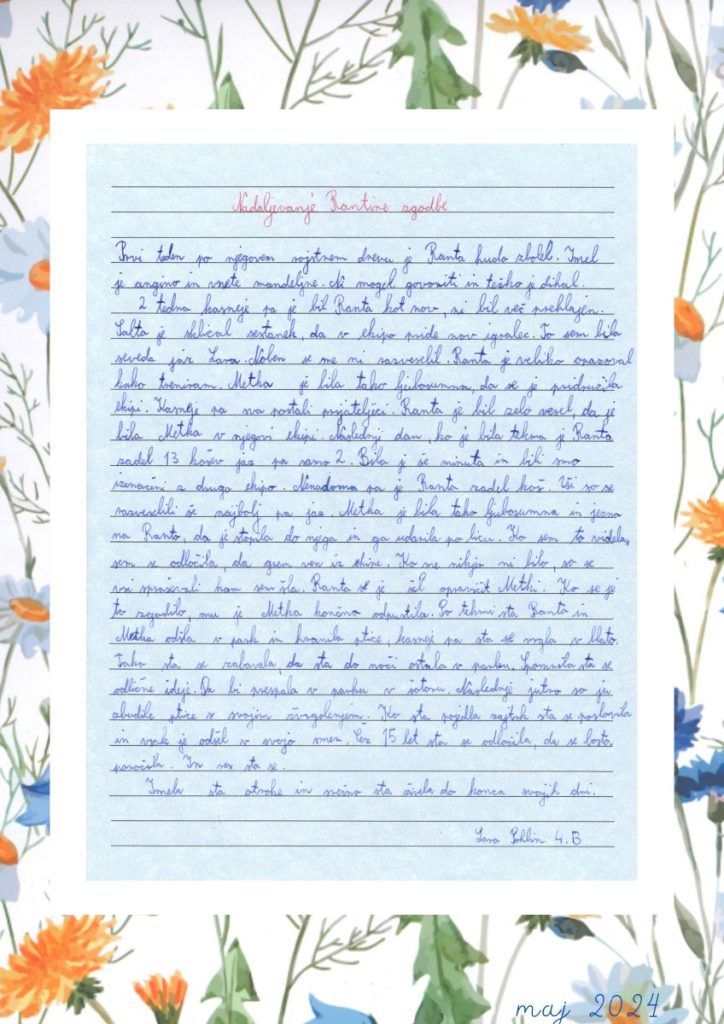 Nadaljevanje Rantine zgodbe
Prvi teden po njegovem rojstnem dnevu je Ranta hudo zbolel. Imel
je angino in vnete mandeljne. Ni mogel govoriti in težko je dihal.
2 tedna kasneje pa je bil Ranta kot nov, ni bil več prehlajen.
Salta je sklical sestanek, da v ekipo pride nov igralec. To sem bila
seveda jaz Lara. Noben se me ni razveselil. Ranta je veliko opazoval
kako treniram. Metka je bila tako ljubosumna, da se je pridružila
ekipi. Kasneje pa sva postali prijateljici. Ranta je bil zelo vesel, da je
bila Metka v njegovi ekipi. Naslednji dan, ko je bila tekma je Ranta
zadel 13 košev jaz pa samo 2. Bila je še minuta in bili smo
izenačeni z drugo ekipo. Nenadoma pa je Ranta zadel koš. Vsi so se
razveselili še najbolj pa jaz. Metka je bila tako ljubosumna in jezna
na Ranto, da je stopila do njega in ga udarila po licu. Ko sem to videla,
sem se odločila, da grem ven iz ekipe. Ko me nikjer ni bilo, so se
vsi spraševali kam sem šla. Ranta se je šel opravičit Metki. Ko se je
to zgodilo, mu je Metka končno odpustila. Po tekmi sta Ranta in
Metka odšla v park in hranila ptice, kasneje pa sta se vrgla v blato.
Tako sta se zabavala, da sta do noči ostala v parku. Spomnila sta se
odlične ideje. Da bi prespala v parku v šotoru. Naslednje jutro so ju
zbudile ptice s svojim žvrgolenjem. Ko sta pojedla zajtrk sta se poslovila
in vsak je odšel v svojo smer. Čez 15 let sta se odločila, da se bosta
poročila. In res sta se.
Imela sta otroke in srečno sta živela do konca svojih dni.
Lara 4. B
maj 2024